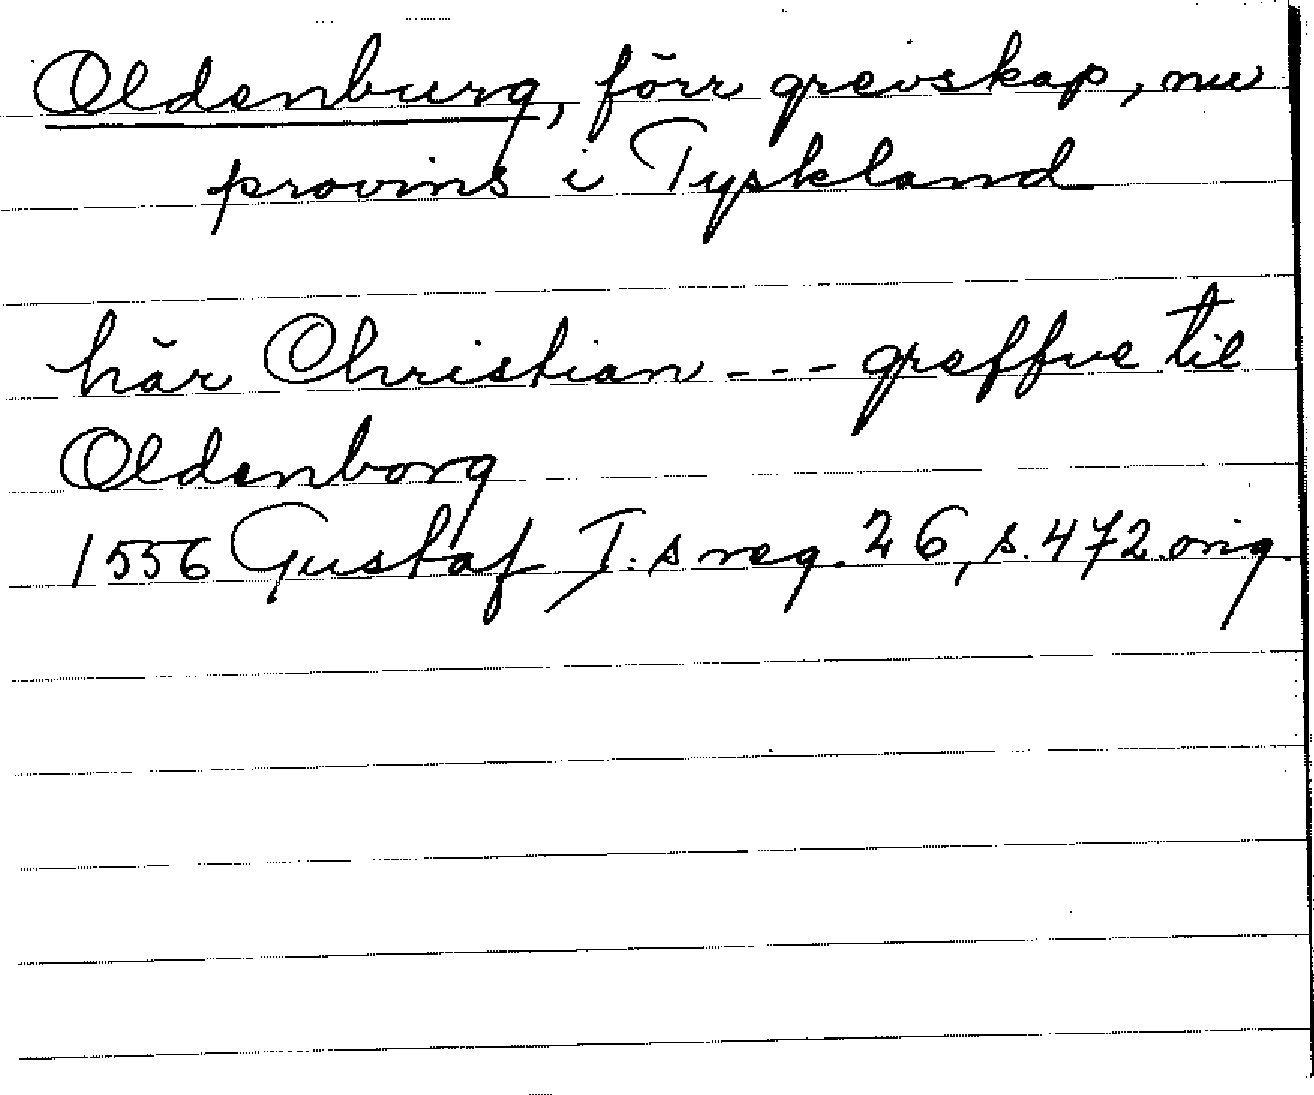 Oldenburg, förr grevskap, nu
provins i Tyskland
här Christian --- greffve til
Oldenborg
1556 Gustaf I:s reg. 26, s. 472 orig.